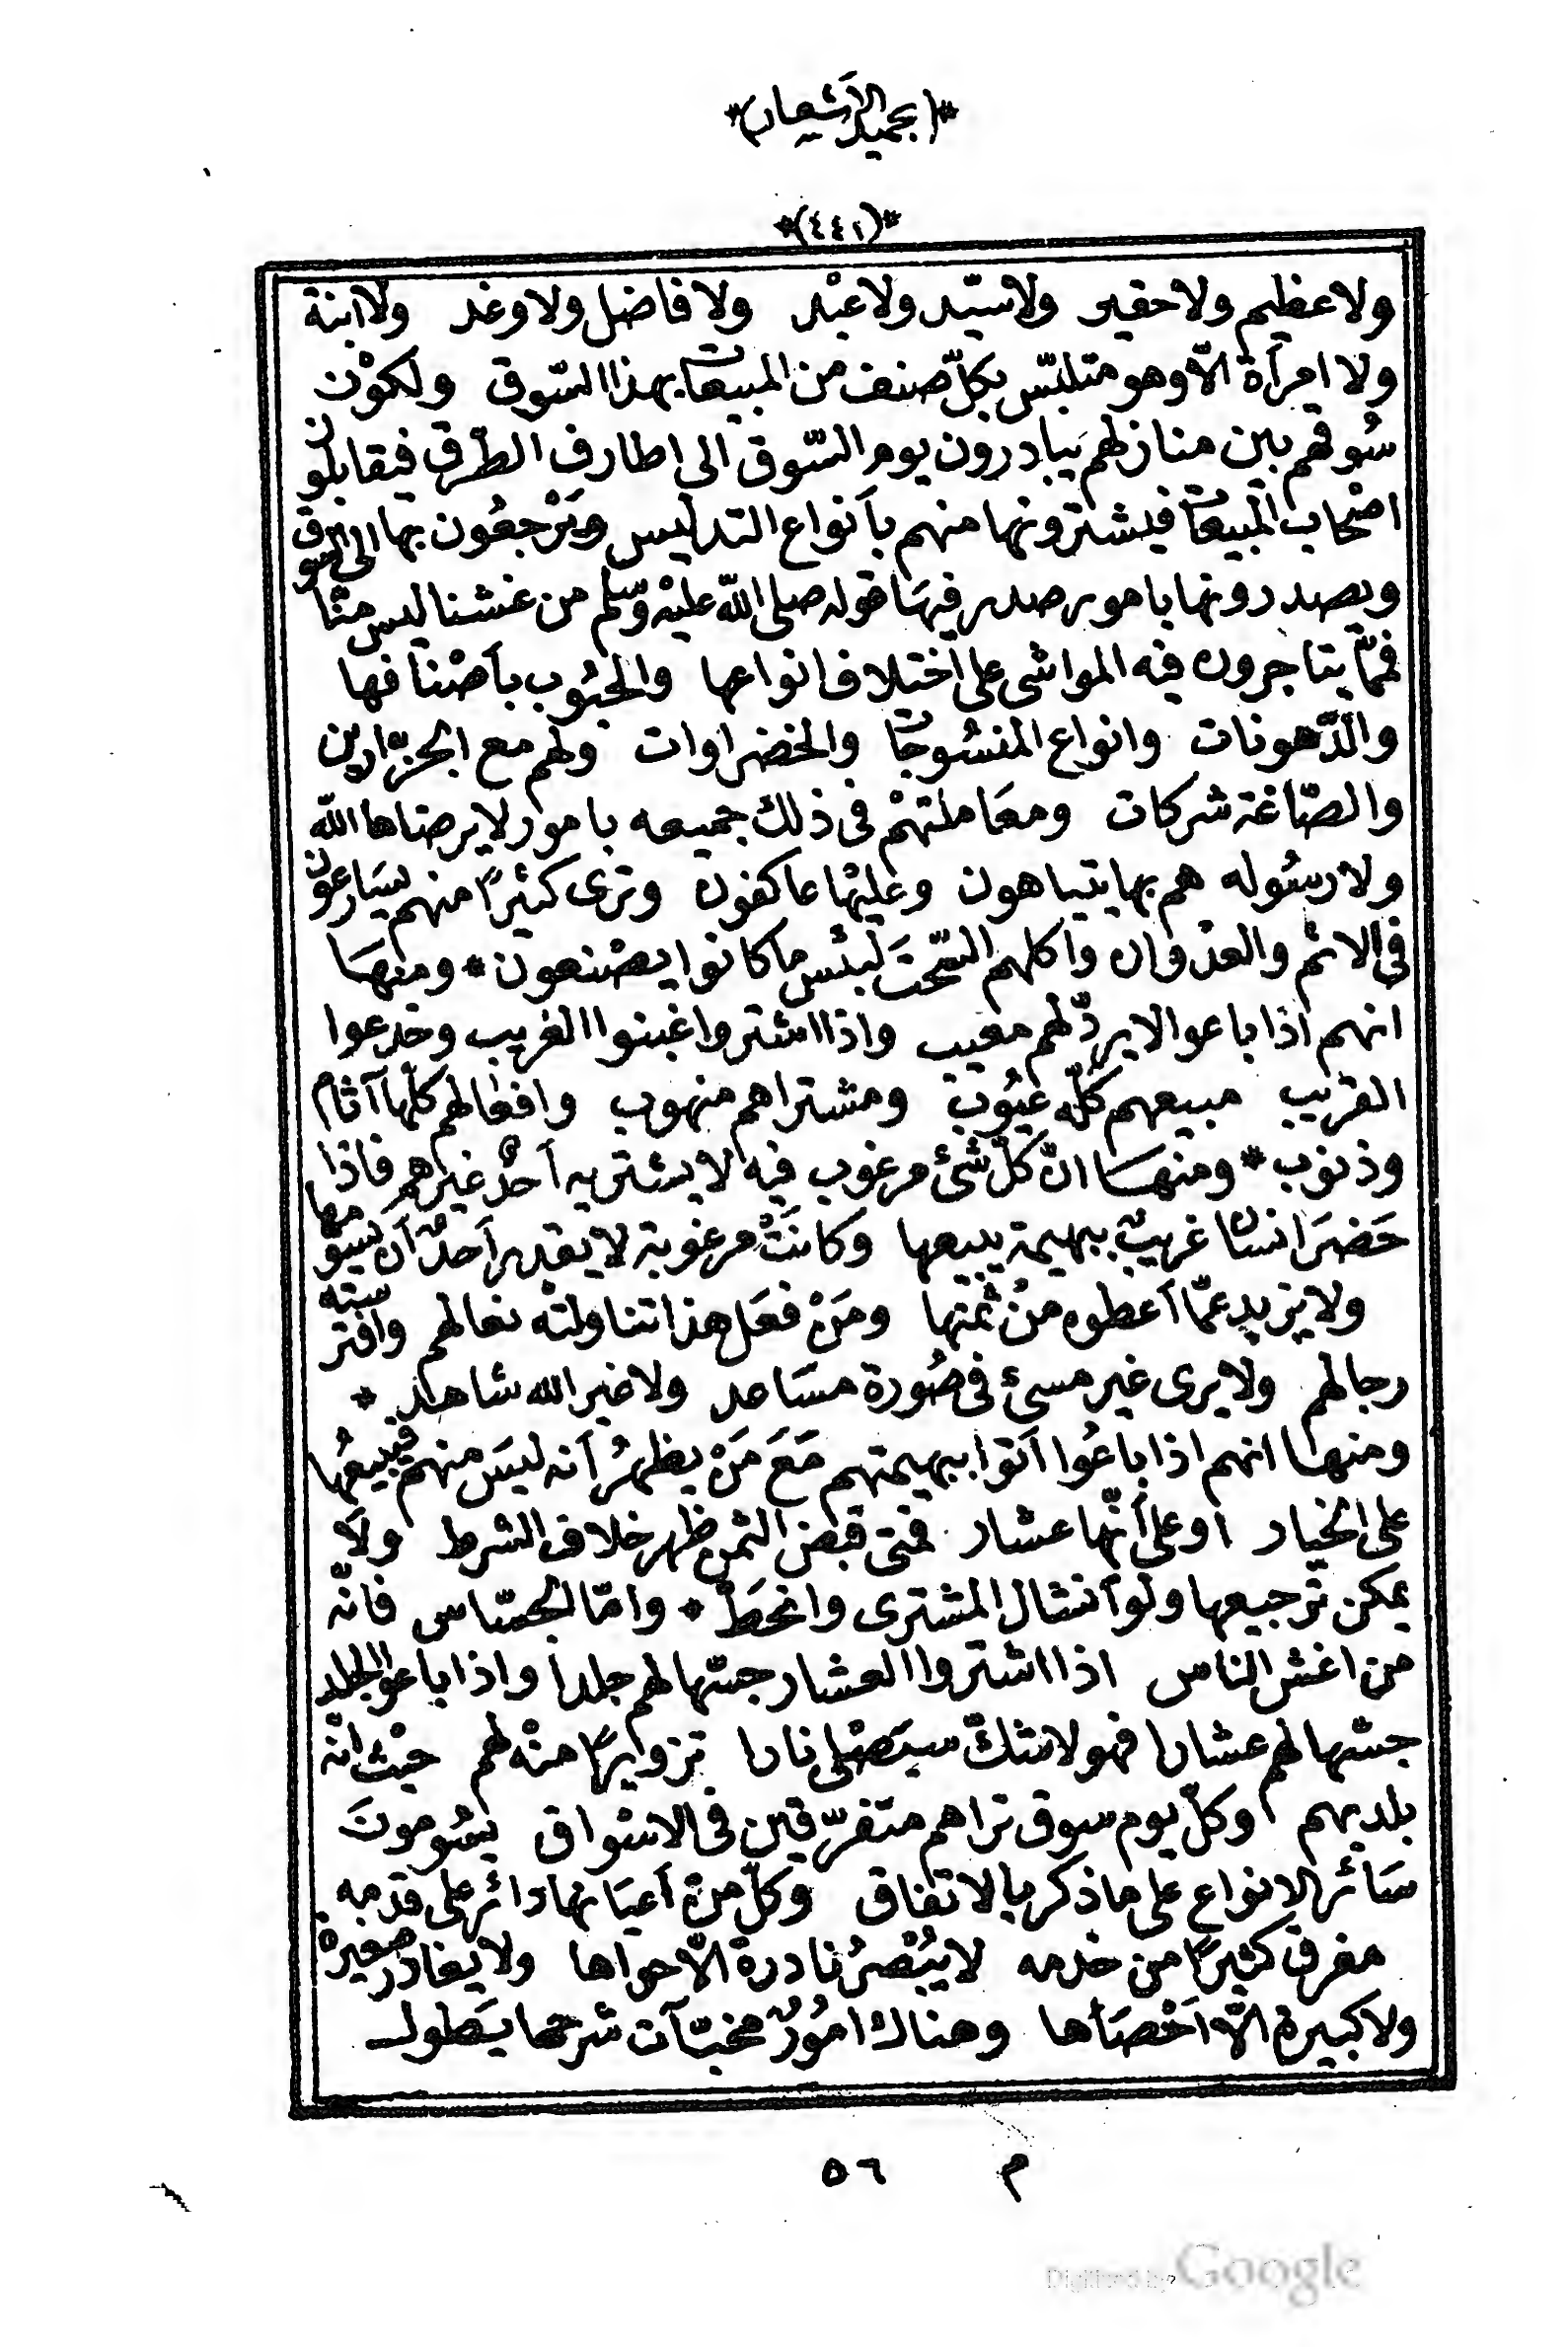 *(بحميد الأشعار)*
*(٤٤١)*
ولا عظيم ولا حقير ولا سيّد ولا عبْد ولا فاضل ولا وغد ولا ابنة
ولا امرأة الّا وهو متلبّس بكلّ صنف من المبيعات بهذا السّوق ولكوْن
سُوقهم بين منازلهم يبادرون يوم السّوق الى اطارف الطّرق فيقابلون
اصْحاب المبيعات فيشترونها منهم بأنواع التدليس ويَرْجعُون بها الى السوق
ويصدرونها بامور صدر فيهَا قوله صلى اللّه عليْه وسّلم من غشنا ليس منّا
فممّا يتاجرون فيه المواشى على اختلاف انواعها والحبُوب بأصْنافها
والدّهونات وانواع المنسُوجات والخضراوات ولهم مع الجزّارين
والصّاغة شركات ومعَاملتهمْ فى ذلك جميعه بامور لا يرضاها اللّه
ولا رسُوله هم بها يتباهون وعليْها عاكفون وترى كثيرًا منهم يسَارعون
فى الاثم والعدْوان واكلهم السّحتَ لبئس ما كانوا يصْنعون * ومنهَا
انهم اذا باعوا لا يردّ لهم معيب واذا اشتروا غبنوا الغريب وخدعوا
القريب مبيعهم كلّه عيُوب ومشتراهم منهوب وافعالهم كلّها آثام
وذنوب * ومنهَا انّ كلّ شئ مرغوب فيه لا يشتريه أحدٌ غيرهم فاذا
حَضرَ انسان غريبٌ ببهيمة يبيعها وكانَتْ مرغوبة لا يقدر أحدٌ أن يسومها
ولا يزيد عمّا أعطوه منْ ثمنها ومَنْ فعَل هذا تناولتْه نعالهم وافترسته
رجالهم ولا يرى غير مسئ فى صُورة مسَاعد ولا غير الله شاهد *
ومنها انهم اذا باعُوا أتوا ببهيمتهم مَعَ مَنْ يظهرُ أنه ليسَ منهم فيبيعُها
على الخيار او على أنّها عشار فمتى قبض الثمن ظهر خلاف الشرط ولا
يمكن ترجيعها ولو انشال المشترى وانحَطّ * وامّا الجسّاس فانّه
من اغش الناس اذا اشتروا العشار جسّها لهم جلدا واذا باعوا الجلد
جسّها لهم عشارا فهو لا شكّ سيَصْلى نارا تزويرًا منْه لهم حيْث انّه
بلديهم وكلّ يوم سوق تراهم متفرّقين فى الاسْواق يسُومونَ
سَائر الانواع على ما ذكر بالاتفاق وكلّ منْ أعيَانها دائر على قدمه
مفرق كثيرًا من خدمه لا يبْصرُ نادرة الّا حواها ولا يغادر صغيرة
ولا كبيرة الّا أحْصَاها وهناك امُورٌ مخبّآت شرحها يَطول
م ٥٦
Digitized by Google